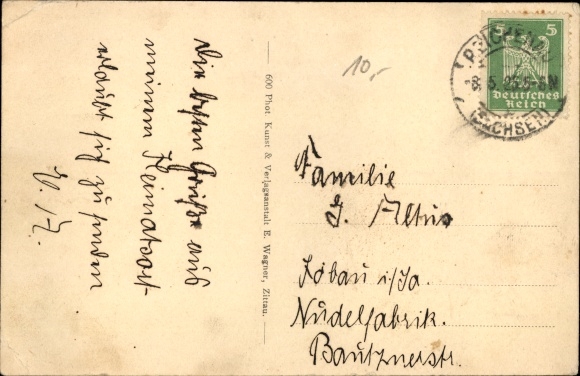 Die besten Grüße aus
meinem Heimatsort
erlaubt sich zu senden
600 Phot. Kunst & Verlagsanstalt E. Wagner, Zittau.
10,-
5 5
Deutsches
Reich
Familie
Löbau i/Sa.
Nudelfabrik.
Bautznerstr.